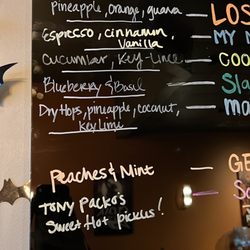 Pineapple, orange, guava — LOS
Espresso, cinnamon, Vanilla — MY N
Cucumber, Key-Lime — COO
Blueberry & Basil — Sla
Dry Hops, pineapple, coconut, — mo
Key lime
Peaches & Mint — GE
Tony Packo's
Sweet Hot pickles!